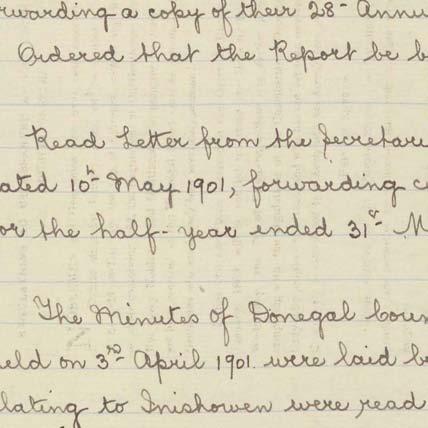 rwarding a copy of their 28th Annu
Ordered that the Report be b
Read Letter from the Secretar
ated 10th May 1901, forwarding c
or the half-year ended 31st M
The Minutes of Donegal Coun
eld on 3rd April 1901. were laid be
lating to Inishowen were read